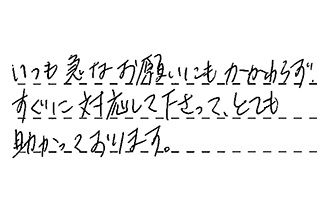 いつも急なお願いにもかかわらず、
すぐに対応して下さって、とても
助かっております。